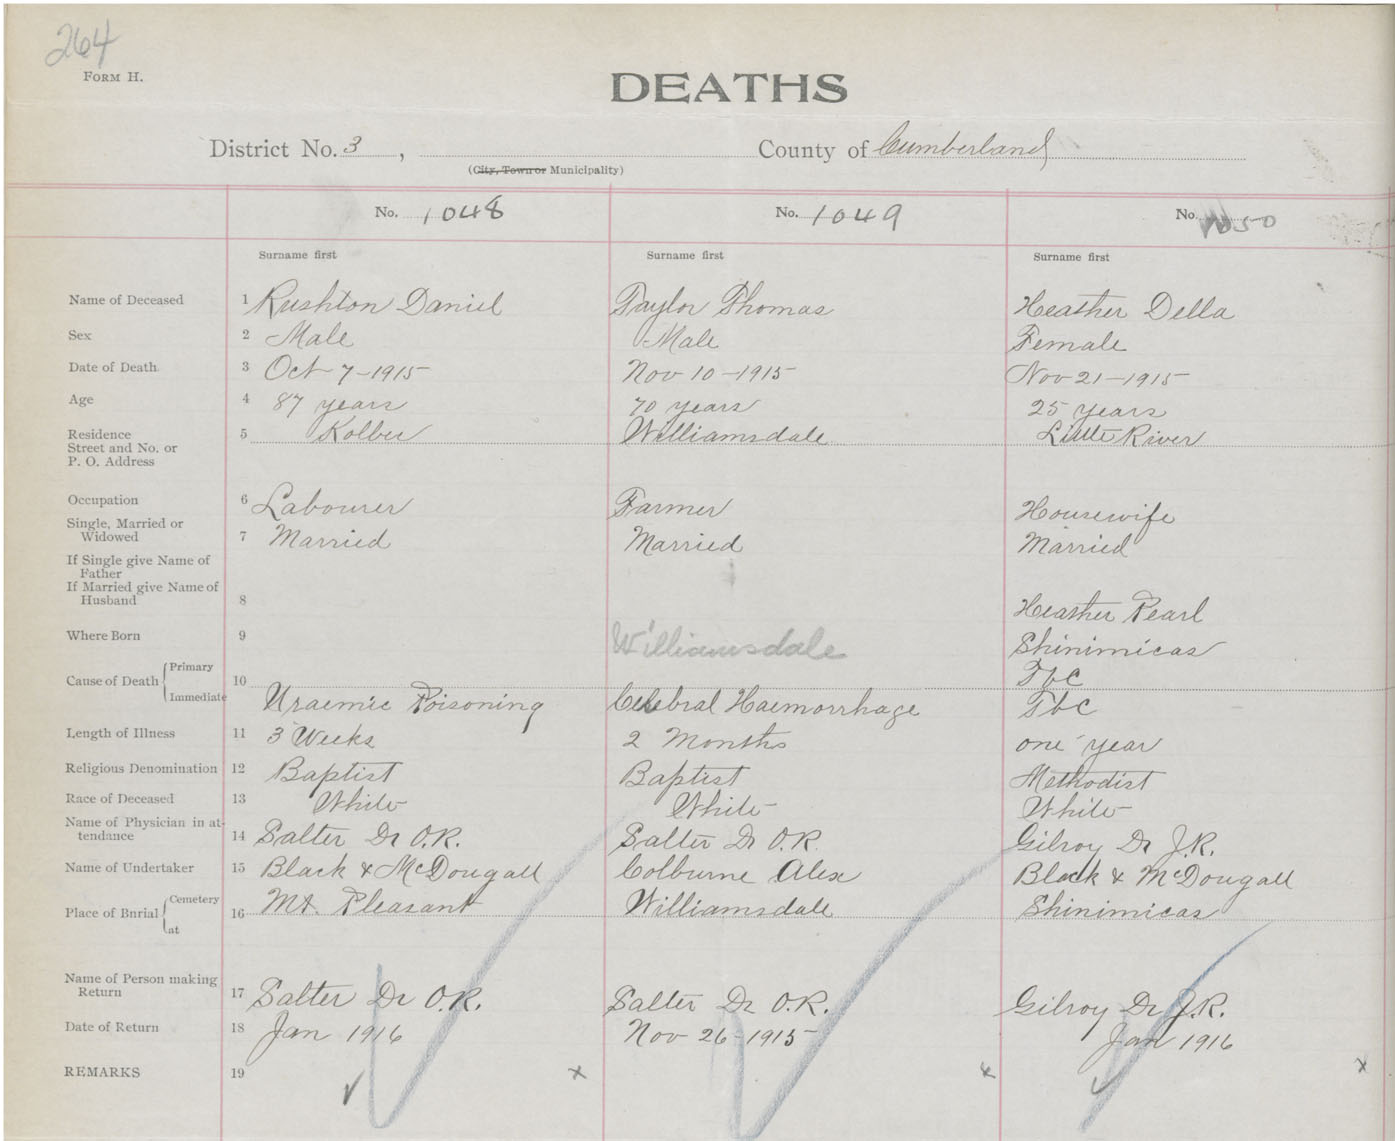 264
FORM H.
DEATHS
District No. 3, County of Cumberland
(City, Town or Municipality)
No. 1048 No. 1049 No. 1050
Surname first Surname first Surname first
Name of Deceased 1 Rushton Daniel Taylor Thomas Heather Della
Sex 2 Male Male Female
Date of Death 3 Oct 7-1915 Nov 10-1915 Nov 21-1915
Age 4 87 years 70 years 25 years
Residence 5 Kolbec Williamsdale Little River
Street and No. or
P. O. Address
Occupation 6 Labourer Farmer Housewife
Single, Married or
Widowed 7 Married Married Married
If Single give Name of
Father
If Married give Name of
Husband 8 Heather Pearl
Where Born 9 Williamsdale Shinimicas
Cause of Death Primary 10 Tbc
Immediate Uraemic Poisoning Cerebral Haemorrhage Tbc
Length of Illness 11 3 Weeks 2 Months one year
Religious Denomination 12 Baptist Baptist Methodist
Race of Deceased 13 White White White
Name of Physician in at-
tendance 14 Salter Dr O.R. Salter Dr O.R. Gilroy Dr J.R.
Name of Undertaker 15 Black & McDougall Colburne Alex Black & McDougall
Place of Burial Cemetery 16 Mt. Pleasant Williamsdale Shinimicas
at
Name of Person making
Return 17 Salter Dr O.R. Salter Dr O.R. Gilroy Dr J.R.
Date of Return 18 Jan 1916 Nov 26-1915 Jan 1916
REMARKS 19 x x x